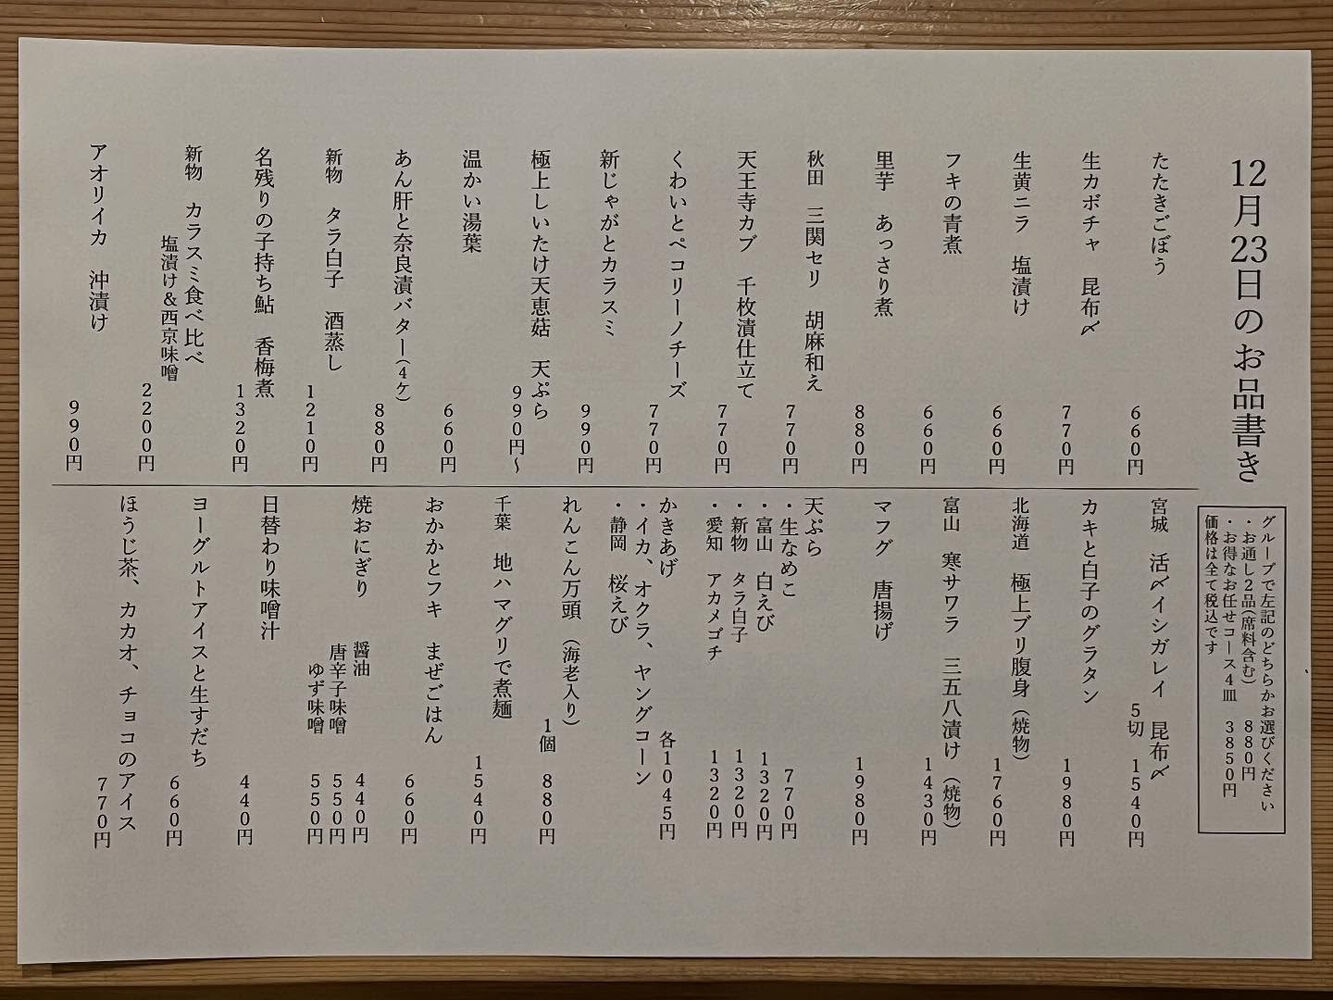 12月23日のお品書き
グループで左記のどちらかお選びください
・お通し2品(席料含む) 880円
・お得なお任せコース4皿 3850円
価格は全て税込です
たたきごぼう 660円
生カボチャ 昆布〆 770円
生黄ニラ 塩漬け 660円
フキの青煮 660円
里芋 あっさり煮 880円
秋田 三関セリ 胡麻和え 770円
天王寺カブ 千枚漬仕立て 770円
くわいとペコリーノチーズ 770円
新じゃがとカラスミ 990円
極上しいたけ天恵菇 天ぷら 990円〜
温かい湯葉 660円
あん肝と奈良漬バター(4ケ) 880円
新物 タラ白子 酒蒸し 1210円
名残りの子持ち鮎 香梅煮 1320円
新物 カラスミ食べ比べ
塩漬け&西京味噌 2200円
アオリイカ 沖漬け 990円
宮城 活〆イシガレイ 昆布〆
5切 1540円
カキと白子のグラタン 1980円
北海道 極上ブリ腹身(焼物) 1760円
富山 寒サワラ 三五八漬け(焼物) 1430円
マフグ 唐揚げ 1980円
天ぷら
・生なめこ 770円
・富山 白えび 1320円
・新物 タラ白子 1320円
・愛知 アカメゴチ 1320円
かきあげ 各1045円
・イカ、オクラ、ヤングコーン
・静岡 桜えび
れんこん万頭(海老入り)
1個 880円
千葉 地ハマグリで煮麺 1540円
おかかとフキ まぜごはん 660円
焼おにぎり 醤油 440円
唐辛子味噌 550円
ゆず味噌 550円
日替わり味噌汁 440円
ヨーグルトアイスと生すだち 660円
ほうじ茶、カカオ、チョコのアイス 770円